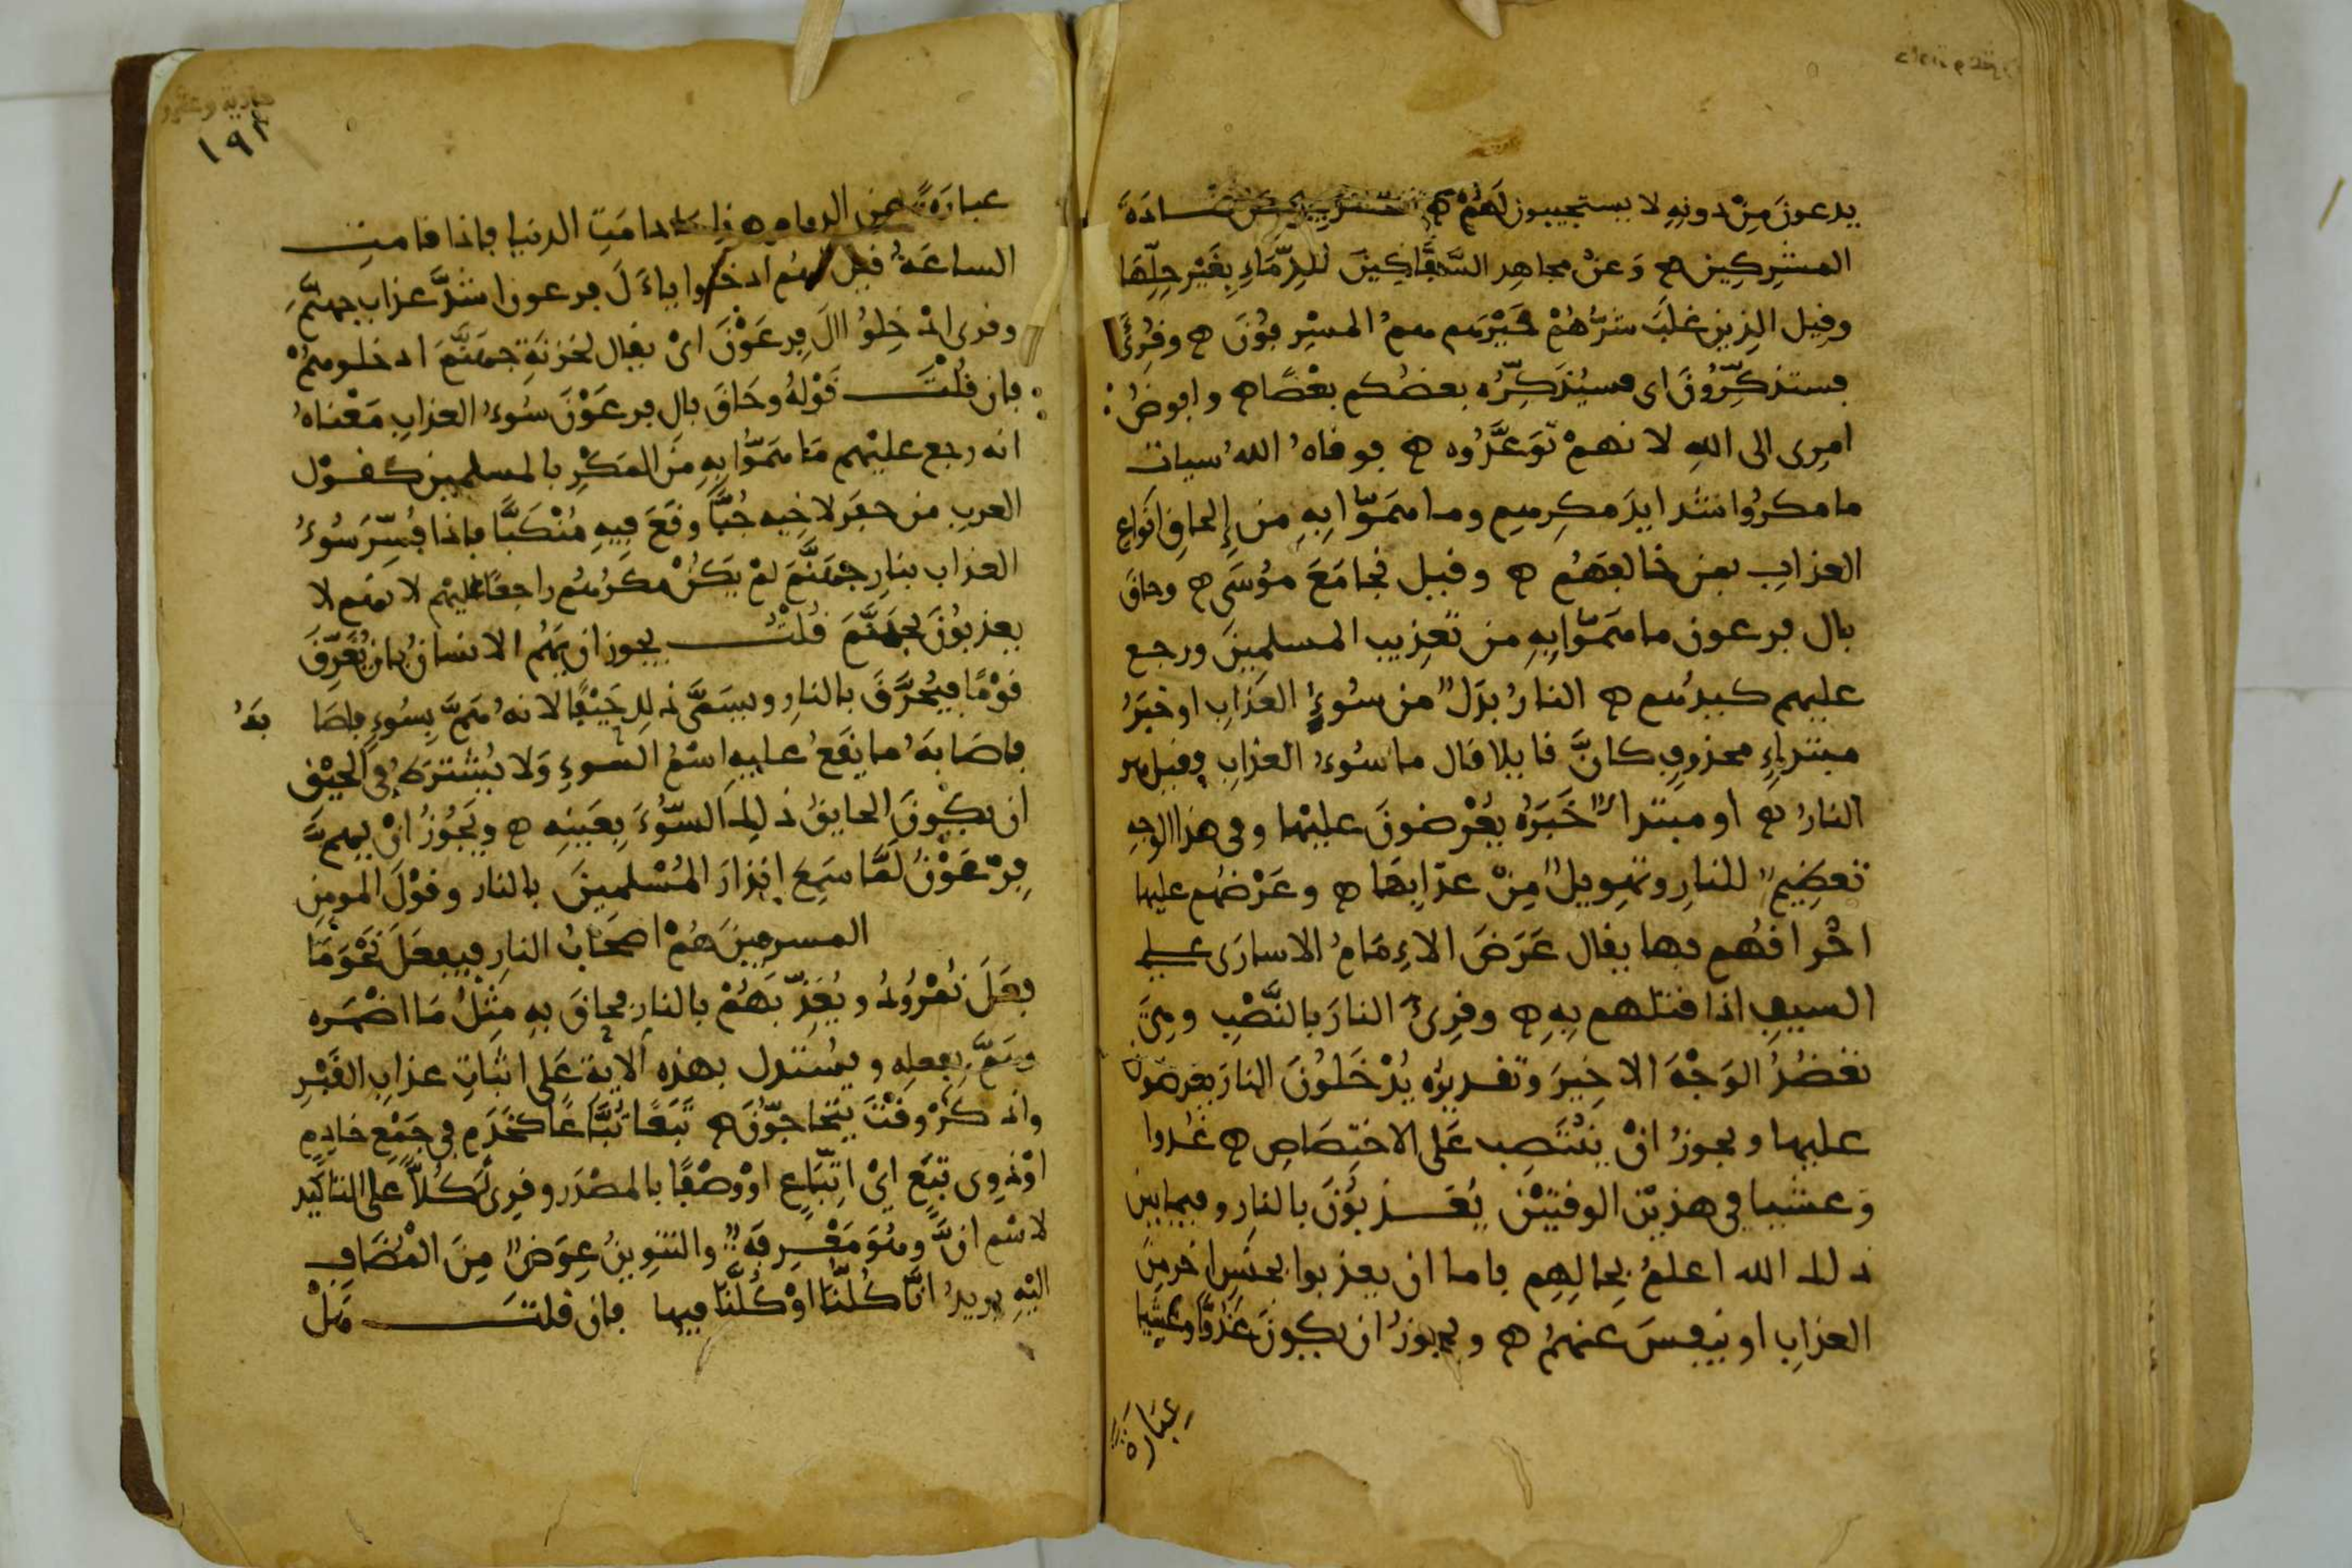 يدعون مِنْ دونِهِ لا يستجيبون لَهُمْ ه قتادَة
المشرِكِين ه وَعنْ مجاهِد السَّفَّاكِينَ للدِّمَاءِ بِغَيْرِ حِلِّهَا
وقيل الذين غلَبَ شرُّهُمْ خَيْرَهم همُ المسْرِفُونَ ه وقُرِئَ
فستذكِّرُونَ اى فسيُذَكِّرُ بعضُكم بعْضًا ه وافوضُ
امرِى الى اللهِ لانهمْ تَوَعَّدُوه ه فوقاهُ اللهُ سيات
ما مكرُوا شدايدَ مكرِهِم وما همّوا بِهِ من إلحاقِ انواعِ
العذابِ بمن خالفهُم ه وقيل نجا مَعَ موُسَى ه وحاقَ
بال فرعون ما همّوا بِهِ من تعذِيبِ المسلمينَ ورجع
عليهم كيدُهم ه النارُ بدَلٌ من سُوءِ العَذابِ او خبَرُ
مبتداءٍ محذوفٍ كانَّ قايلا قال ما سُوءُ العذابِ فقيل هو
النارُ ه او مبتدأٌ خَبَرُهُ يُعْرَضونَ عليْها وفى هذا الوجهِ
تعظِيمٌ للنارِ وتهوِيلٌ مِنْ عذابِهَا ه وعَرْضُهم عليها
احْراقُهُم بها يقال عَرَضَ الإِمَامُ الاسارَى على
السيفِ اذا قتلهم بِهِ ه وقرِئَ النارَ بالنَّصْبِ وهىَ
تعْضُدُ الوَجْهَ الاخِيرَ وتقديرُه يُدْخَلُونَ النارَ يعرضون
عليها ويجوزُ انْ ينْتَصِب عَلَى الاختِصَاصِ ه غُدوا
وَعشيا فى هذيْن الوقتيْن يُعَذبُونَ بالنارِ وفيما بين
ذلك الله اعلمُ بِحالِهِم فاما ان يعذبوا بجنسٍ اخر مِنَ
العذابِ او ينفسَ عنهمُ ه ويجوزُ ان يكونَ غُدُوًّا وعشِيا
عِبَارَةً
١٩٢
عبارَةً عن الدوام ه ذا ما دامَتِ الدنيا فاذا قامت
الساعَةُ قيل لهُم ادخلوا ياءَلَ فرعون اشدَّ عذابِ جهنَّمَ
وقرى ادْخِلُوُا الَ فِرعَوْنَ اىْ يقال لخزنَةِ جهَنَّمَ ادخلوهمْ
فان قُلْتَ قَوْلهُ وحَاقَ بال فرعَوْنَ سُوءُ العذابِ مَعْناهُ
انه رجع عليْهم مَا همّوا بِهِ مِنَ المَكْرِ بالمسلمين كقوْل
العربِ من حفَر لاخِيه جُبًّا وقَعَ فِيهِ مُنْكَبًّا فاذا فُسِّرَ سُوءُ
العذاب بنارِ جهَنَّمَ لمْ يَكُنْ مكرُهم راجعًا عليْهم لانهم لا
يعذبُونَ بجهَنَّمَ قُلْتُ يجوز ان يَهُمَّ الانسانُ بان يُغَرِّقَ
قوْمًا فيُحرَّقَ بالنارِ ويسَمَّى ذلك حَيْقًا لانهُ هَمَّ بِسُوءٍ فاصَا بَهُ
فاصَابَهُ ما يقَعُ عليه اسْمُ السوءِ وَلا يُشْتَرَطُ فى الحيْق
ان يكُونَ الحايقُ ذلِكَ السُّوءَ بِعَيْنِهِ ه ويَجُوزُ انْ يهم
فِرْعَوْنُ لَمَّا سَمِعَ انذارَ المُسْلمِينَ بالنار وقوْلَ المومِنِ
المسرفِينَ هُمْ اصْحَابُ النارِ فيفعَلَ نَحْوَ مَا
فعَلَ نُمْرُوُدُ ويُعَذِّبَهُمْ بالنارِ فحاقَ بِهِ مِثْلُ مَا اضْمَره
وهَمَّ بِفعلِه ويُستدل بهذه الايَةِ عَلَى اثبَاتِ عذابِ القَبْرِ
واذكُرْ وقْتَ يتَحاجّوُنَ ه تَبَعًا تُبَّاعًا كخَدَمٍ فى جَمْعِ خادِمٍ
اوْ ذوِى تبَعٍ اىْ اتِّبَاعٍ اوْ وَصْفًا بالمصْدَرِ وقرِئَ كُلاًّ عَلَى التاكِيدِ
لاسْم انَّ وهُوَ مَعْرِفَةٌ والتنوِينُ عِوَضٌ مِنَ المُضَافِ
اليْهِ يريدُ انَّا كُلَّنَا اوْ كُلُّنَا فيها فان قلتَ هَلْ